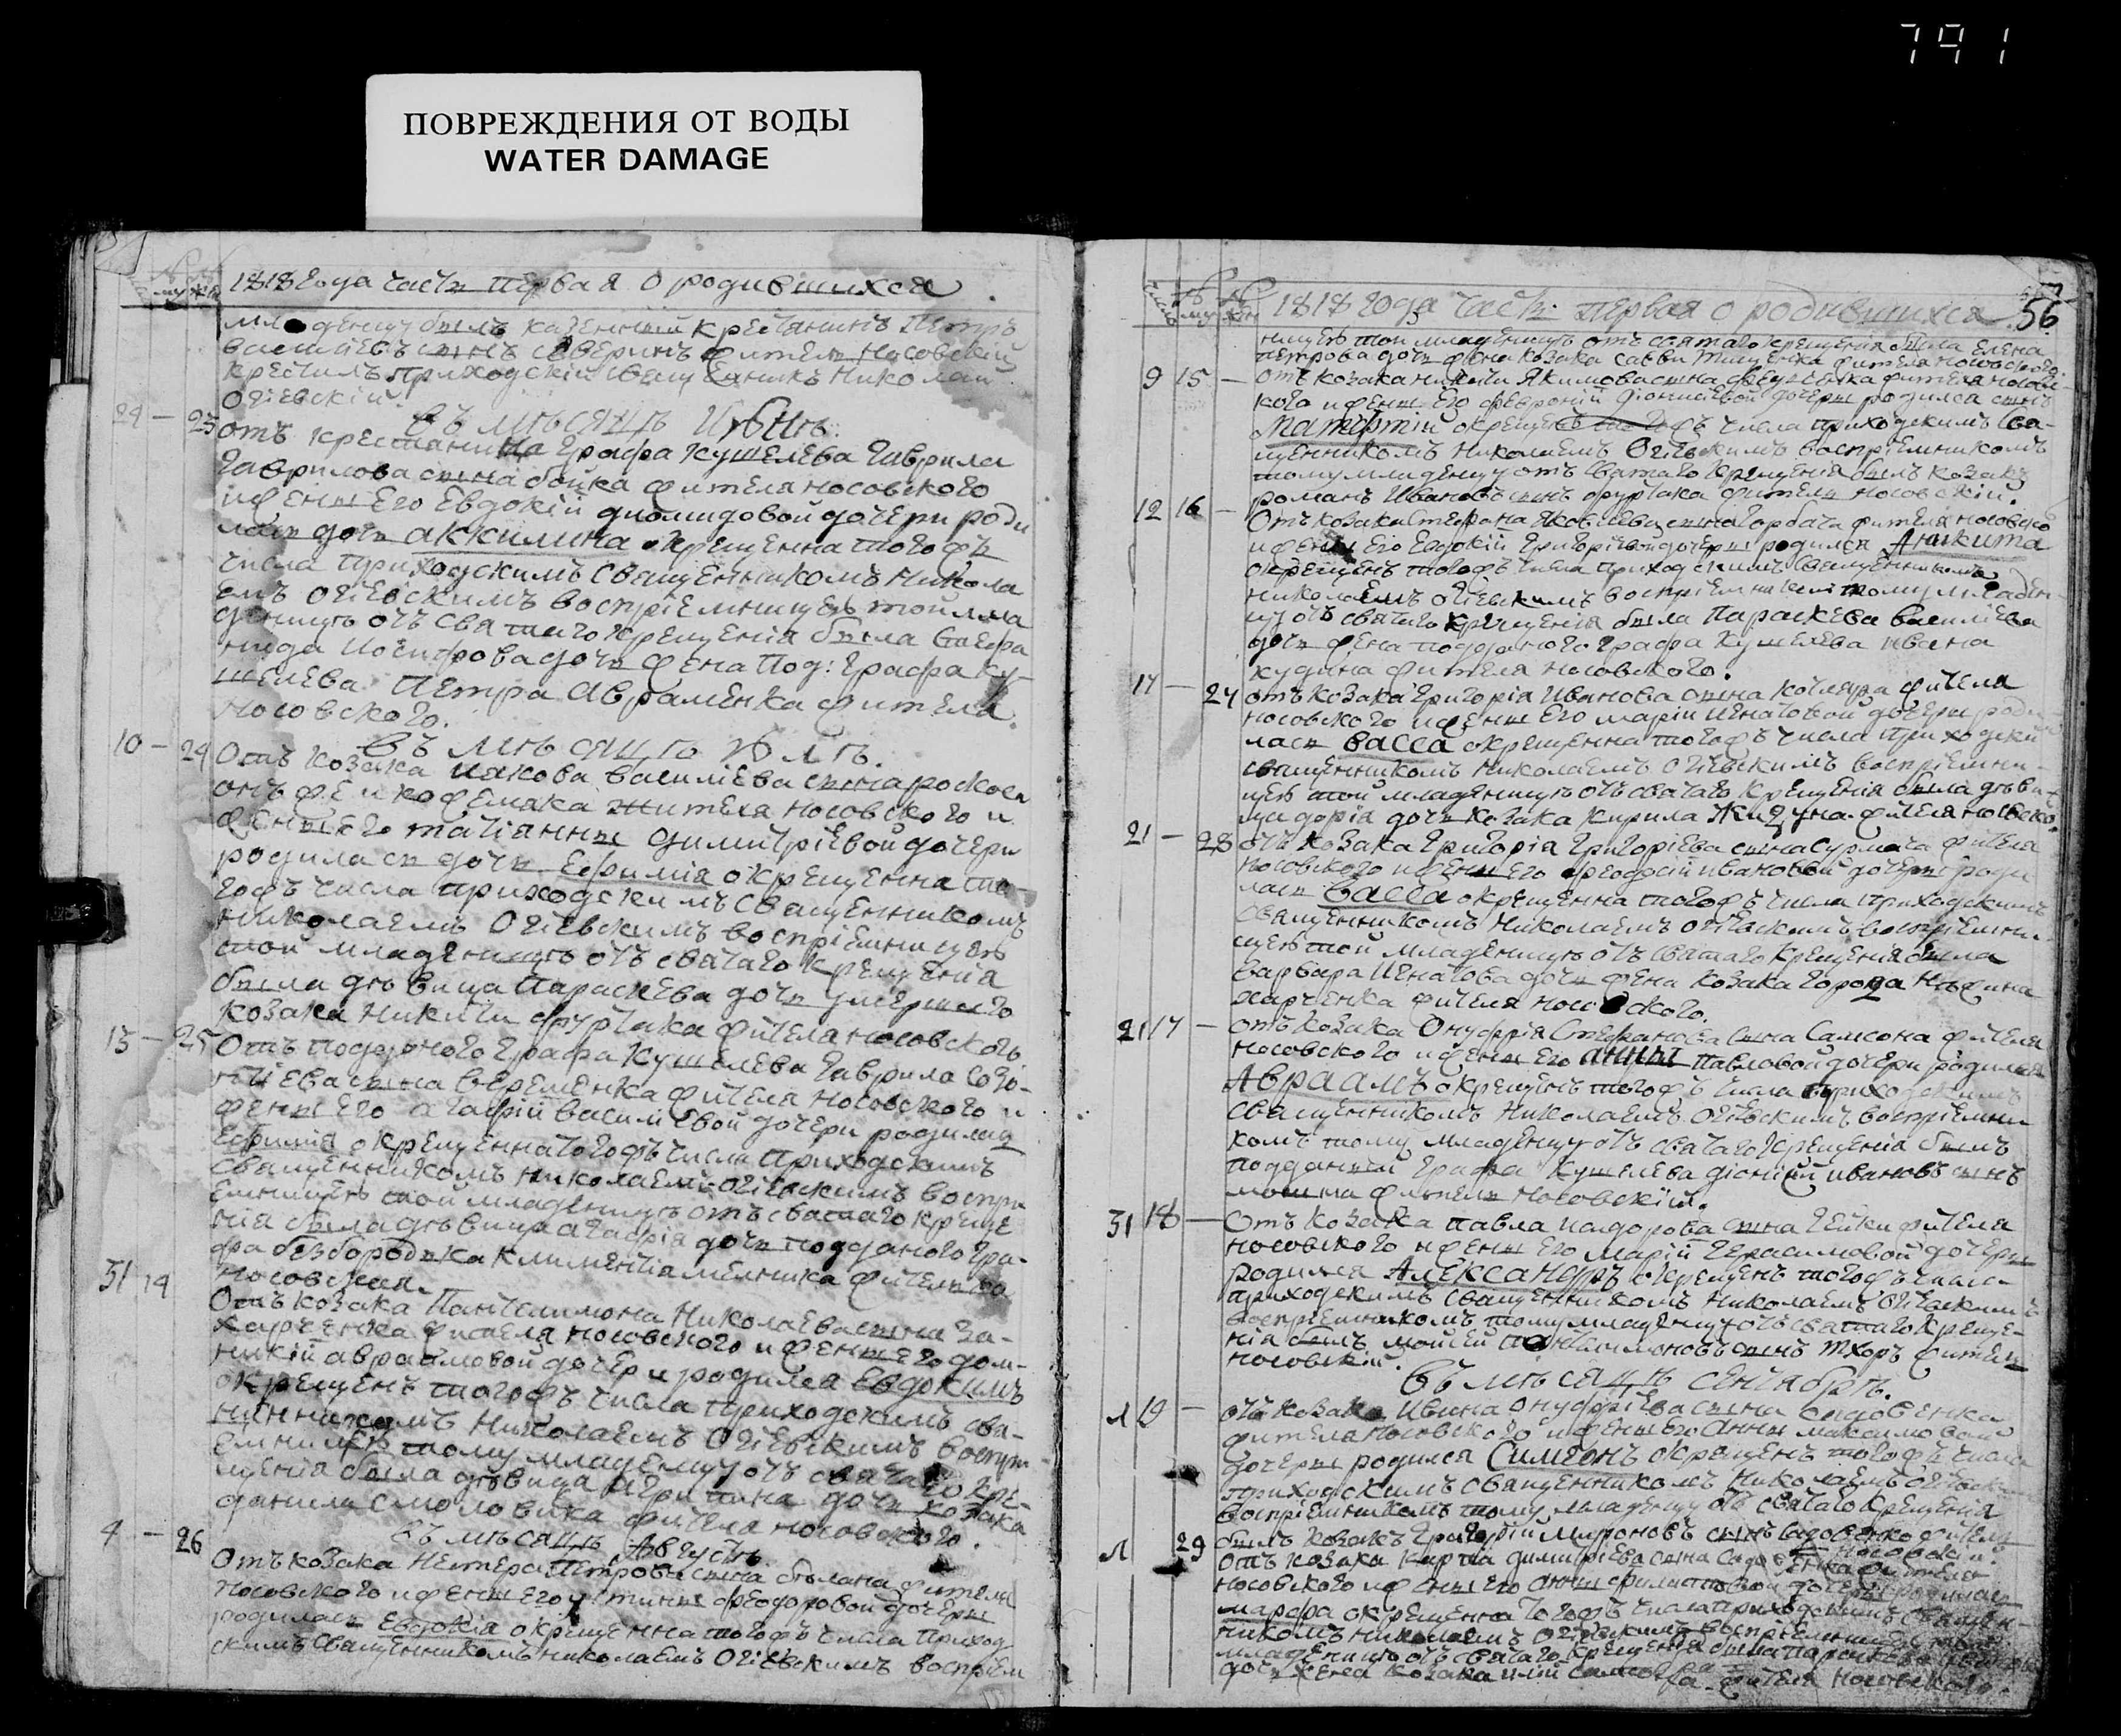 791
ПОВРЕЖДЕНИЯ ОТ ВОДЫ
WATER DAMAGE
1818 года часть первая о родившихся
младенцу былъ казенный крестьянинъ Петръ
васильевъ сынъ северинъ жытель носовскій
крестилъ приходскій священникъ Николай
Огіевскій.
въ мѣсяцѣ Июнѣ.
29 — 23 отъ крестянина графа кушелева гаврила
гаврилова сына бойка жителя носовского
и жены его Евдокій диомидовой дочери роди
лась дочь акилина окрещенна тогожъ
числа приходскимъ священникомъ никола
емъ огіевскимъ воспріемницею той мла
деницѣ отъ святаго крещенія была
дочь жена под: графа ку-
шелева Петра Авраменка жителя
носовского.
въ мѣсяцѣ Юлѣ.
10 — 24 Отъ козака Иякова василіева сына
жителя носовского и
жены его татіанны димитріевой дочери
родилась дочь Ефимія окрещенна то-
гожъ числа приходскимъ священникомъ
николаемъ Огіевскимъ воспріемницею
той младеницѣ отъ святаго крещенія
была дѣвица Параскева дочь умершаго
козака Никиты фурсака жителя носовского
13 — 25 Отъ подданого графа Кушелева гаврила
сына веременка жителя носовского и
жены его агафій василіевой дочери родилась
Ефимія окрещенна тогожъ числа приходскимъ
священникомъ николаемъ огіевскимъ воспрі
емницею той младеницѣ отъ святаго креще
нія была дѣвица агафія дочь подданого гра-
фа безбородька климентія мельника жителька
носовская.
31 14 Отъ козака Пантелимона Николаева сына за-
харченка жителя носовского и жены его дом-
никій авраамовой дочери родился Евдокимъ
окрещенъ тогожъ числа приходскимъ свя-
щенникомъ Николаемъ Огіевскимъ воспрі-
емницею тому младенцу отъ святаго кре-
щенія была дѣвица Агрипина дочь козака
данила смоловика жителя носовского.
въ мѣсяцѣ Августѣ.
4 — 26 Отъ козака Нестера Петрова сына жителя
носовского и жены его устины феодоровой дочери
родилась Евдокія окрещенна тогожъ числа приход
скимъ священникомъ николаемъ Огіевскимъ воспріем
56
1818 года часть первая о родившихся
ницею той младеницѣ отъ святаго крещенія была Елена
петрова дочь жена козака саввы тищенка жителя носовского.
9 15 — отъ козака никиты Якимова сына жителя носов-
кого и жены его февроній діонисіевой дочери родился сынъ
окрещенъ тогожъ числа приходскимъ свя-
щенникомъ Николаемъ Огіевскимъ воспріемникомъ
тому младенцу отъ святаго крещенія былъ козакъ
романъ Ивановъ сынъ фурсака житель носовскій.
12 16 — Отъ козака Стефана Яковлева сына горбача жителя носовско
и жены его Евдокій григоріевой дочери родился Аникита
окрещенъ тогожъ числа приходскимъ священникомъ
николаемъ огіевскимъ воспріемницею тому младен-
цу отъ святаго крещенія была Параскева василіева
дочь жена подданого графа Кушелева ивана
кудина жителя носовского.
17 — 27 отъ козака григорія Иванова сына котляра жителя
носовского и жены его маріи игнатовой дочери роди
лась васса окрещенна тогожъ числа приходски
священникомъ николаемъ огіевскимъ воспріемни
цею той младеницѣ отъ святаго крещенія была дѣви-
ца дорія дочь козака кирила жителя носовско.
21 — 28 отъ козака григорія григоріева сына сурмача жителя
носовского и жены его феодосій ивановой дочери роди
лась васса окрещенна тогожъ числа приходскимъ
священникомъ николаемъ огіевскимъ воспріемни-
цею той младеницѣ отъ святаго крещенія была
варвара игнатова дочь жена козака
харченка жителя носовского.
21 17 — отъ козака Онуфрія Стефанова сына самсона жителя
носовского и жены его анны павловой дочери родился
Авраамъ окрещенъ тогожъ числа приходскимъ
священникомъ Николаемъ огіевскимъ воспріемни
комъ тому младенцу отъ святаго крещенія былъ
подданный графа кушелева ивановъ сынъ
житель носовскій.
31 18 — Отъ козака павла сына гейки жителя
носовского и жены его маріи герасимовой дочери
родился Александръ окрещенъ тогожъ числа
приходскимъ священникомъ николаемъ огіевским
воспріемникомъ тому младенцу отъ святаго креще-
нія былъ мойсей пантелимоновъ сынъ тхоръ житель
носовскій.
въ мѣсяцѣ сентябрѣ.
19 — отъ козака Ивана Онуфріева сына садовенка
жителя носовского и жены его Анны максимовой
дочери родился Симеонъ окрещенъ тогожъ числа
приходскимъ священникомъ николаемъ огіевски
воспріемникомъ тому младенцу отъ святаго крещенія
былъ козакъ григорій мироновъ сынъ садовенко житель
носовскій.
29 отъ козака карпа димитріева сына жителя
носовского и жены его анны дочери родилась
марфа окрещенна тогожъ числа приходскимъ священ-
никомъ николаемъ огіевскимъ воспріемницею той
младеницѣ отъ святаго крещенія была параскева
дочь жена козака жителя носовского.